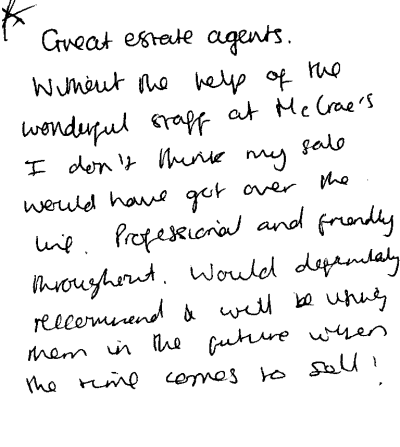 Great estate agents.
Without the help of the
wonderful staff at McCrae's
I don't think my sale
would have got over the
line. Professional and friendly
throughout. Would definitely
recommend & will be using
them in the future when
the time comes to sell!